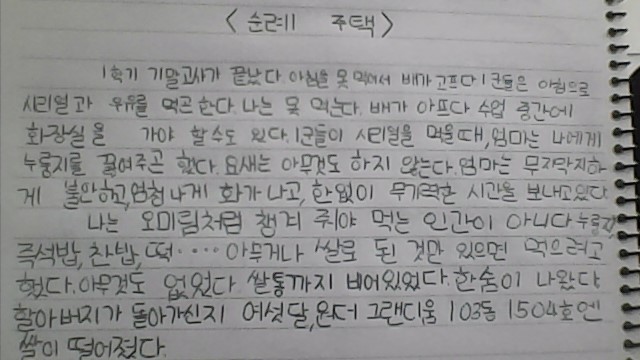 < 순례 주택 >
1학기 기말고사가 끝났다. 아침을 못 먹어서 배가 고프다. 1군들은 아침으로
시리얼과 우유를 먹곤 한다. 나는 못 먹는다. 배가 아프다 수업 중간에
화장실을 가야 할 수도 있다. 1군들이 시리얼을 먹을때, 엄마는 나에게
누룽지를 끓여주곤 했다. 요새는 아무것도 하지 않는다. 엄마는 무지막지하
게 불안하고, 엄청나게 화가 나고, 한없이 무기력한 시간을 보내고있다
나는 오미림처럼 챙겨 줘야 먹는 인간이 아니다 누룽지,
즉석밥, 찬밥, 떡····· 아무거나 쌀로 된 것만 있으면 먹으려고
했다. 아무것도 없었다 쌀통까지 비어있었다. 한숨이 나왔다
할아버지가 돌아가신지 여섯달, 원더 그랜디움 103동 1504호엔
쌀이 떨어졌다.